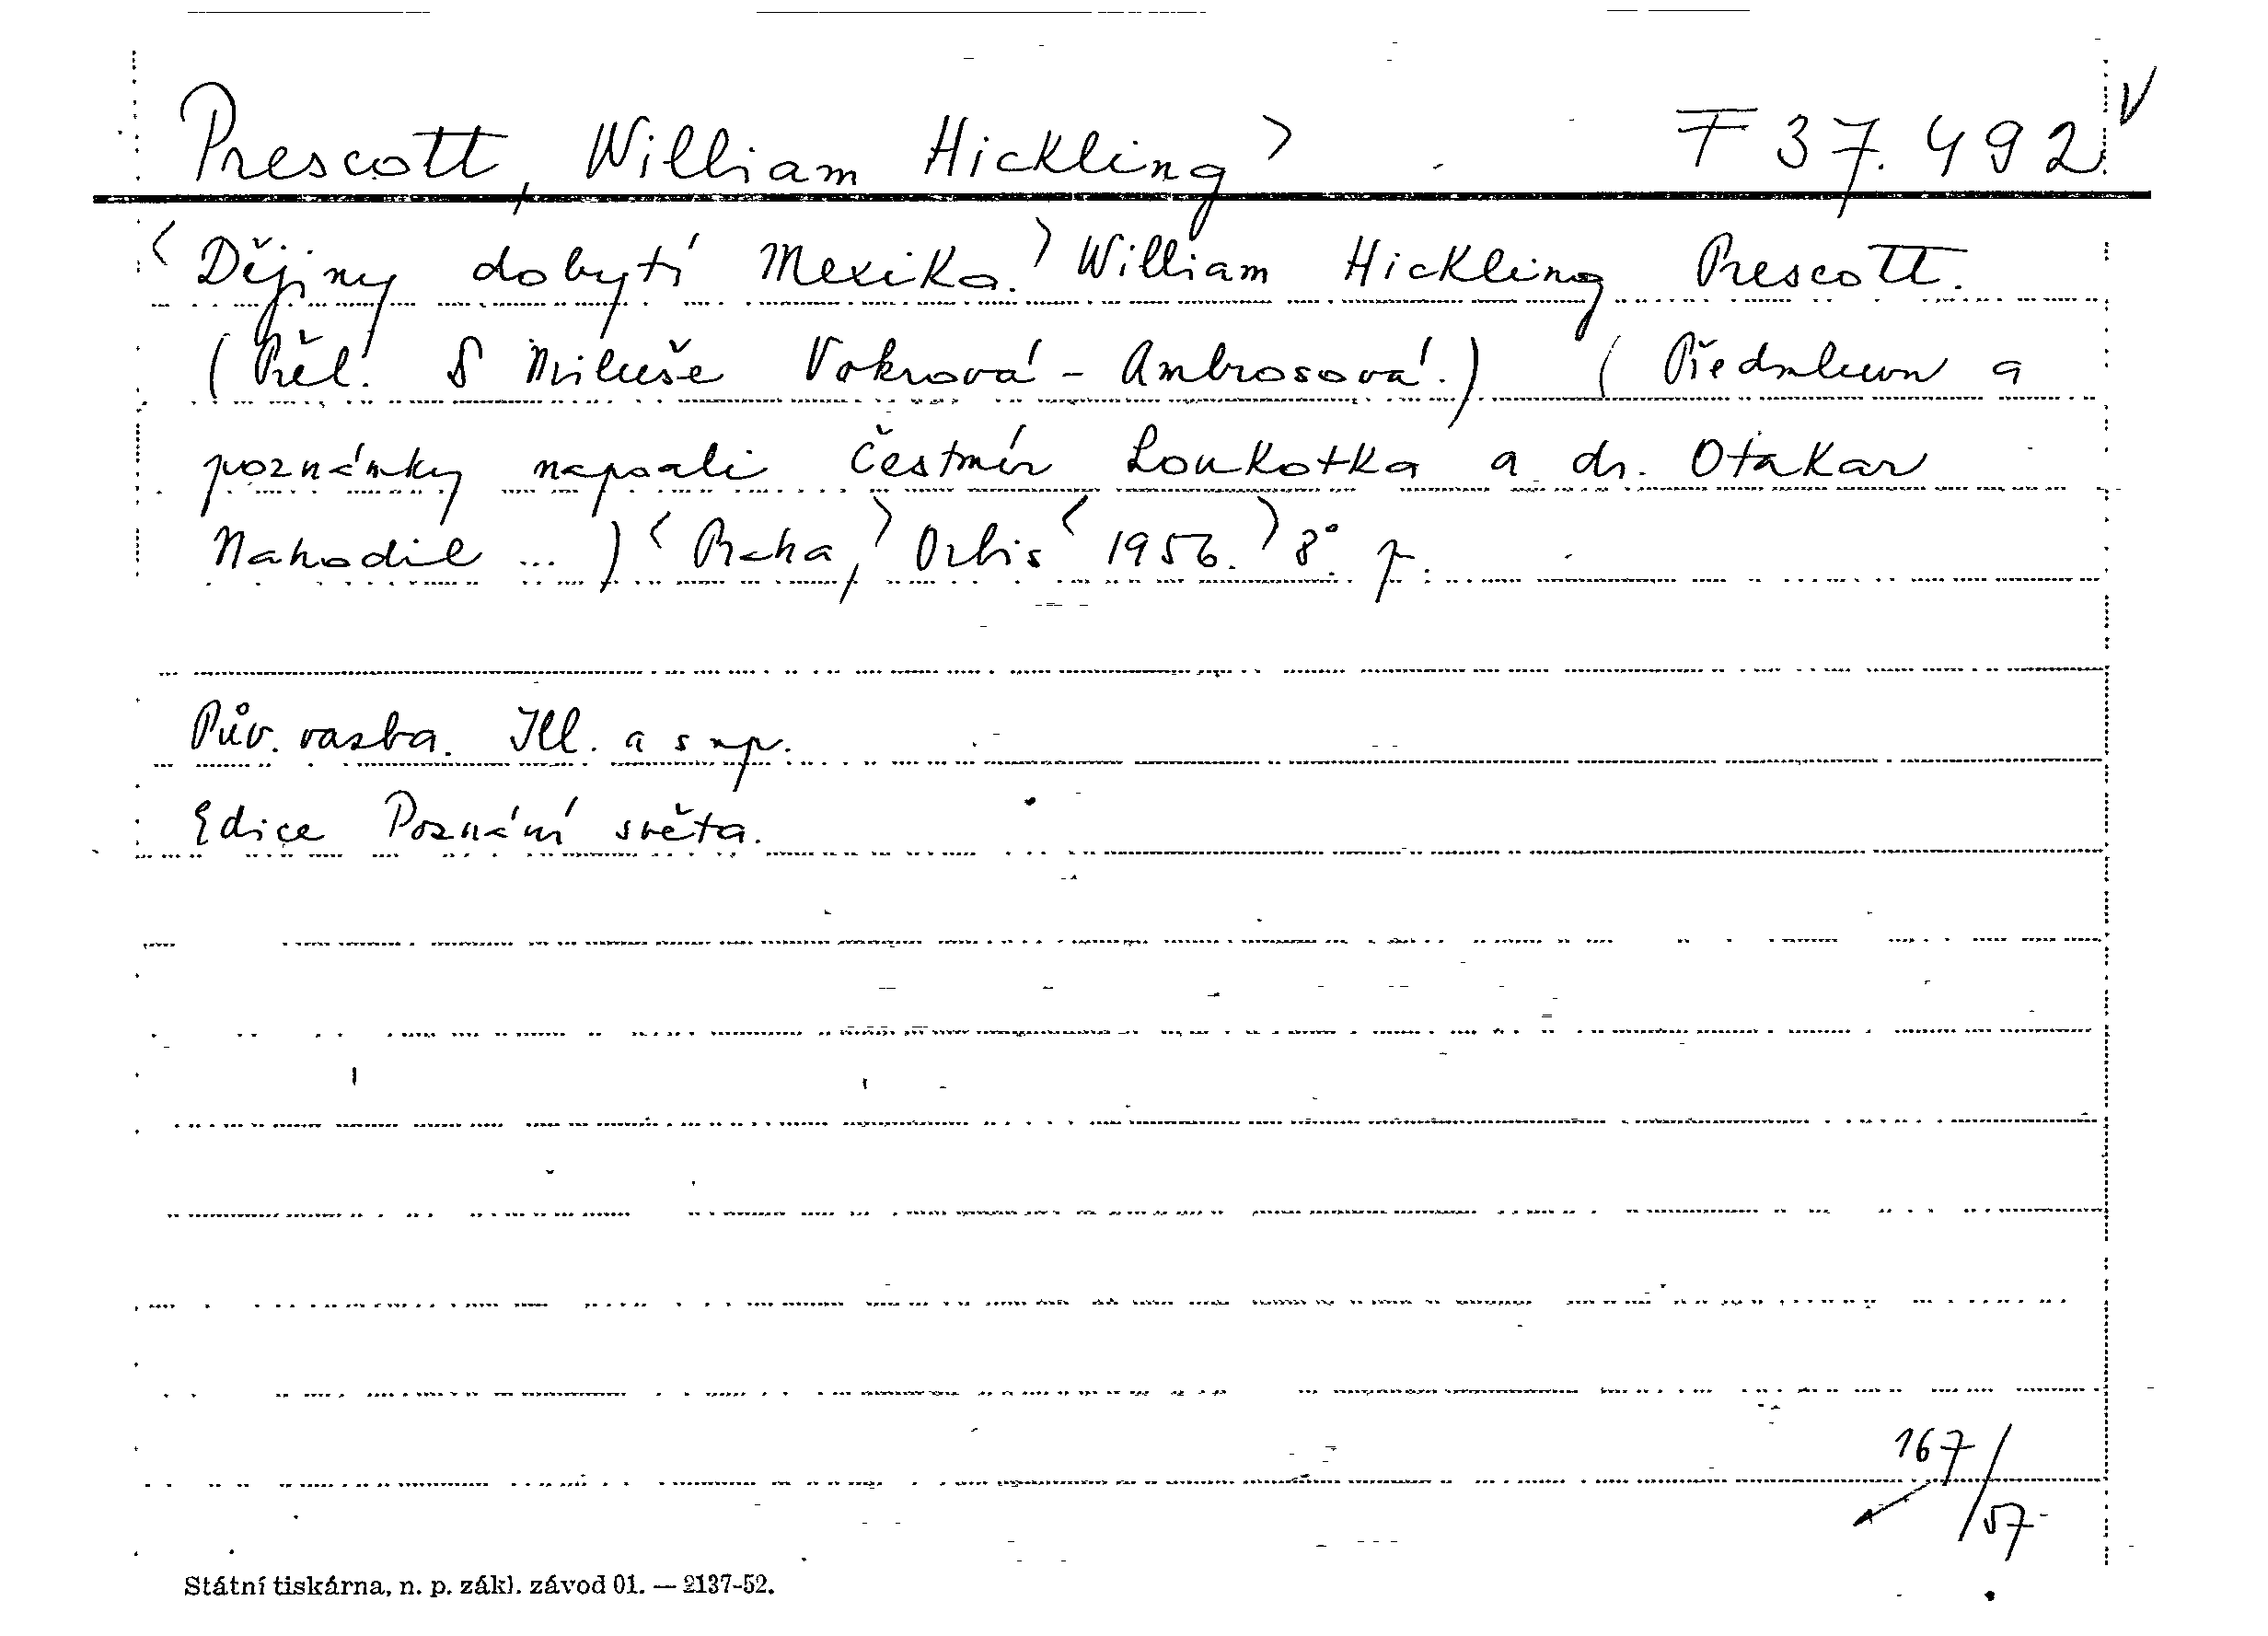 Prescott, William Hickling> F 37.492 V
<Dějiny dobytí Mexika.> William Hickling Prescott.
(Přel. Miluše Vokrová-Ambrosová.) (Předmluvu a
poznámky napsali Čestmír Loukotka a dr. Otakar
Nahodil ...) <Praha,> Orbis <1956.> 8°. p.
Pův. vazba. Ill. a s np.
Edice Poznání světa.
167/57
Státní tiskárna, n. p. zákl. závod 01. — 2137-52.